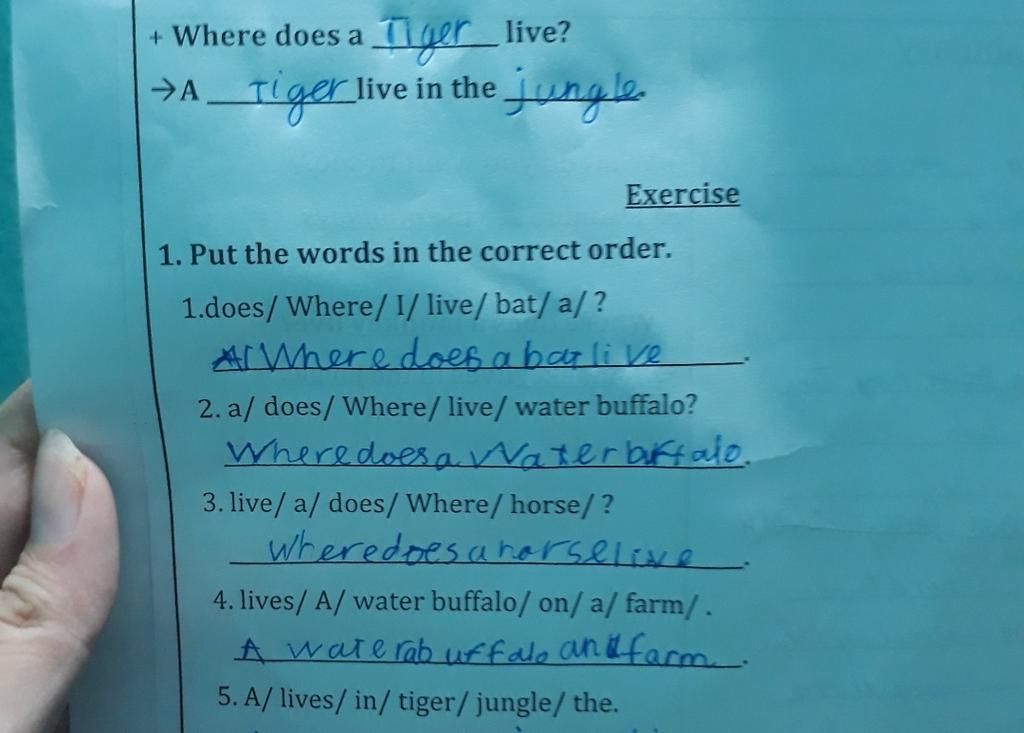 + Where does a Tiger live?
→A Tiger live in the jungle.
Exercise
1. Put the words in the correct order.
1.does/ Where/ I/ live/ bat/ a/ ?
Where does a bat live.
2. a/ does/ Where/ live/ water buffalo?
Where does a Water buffalo.
3. live/ a/ does/ Where/ horse/ ?
Where does a horse live.
4. lives/ A/ water buffalo/ on/ a/ farm/ .
A water ab uffalo and farm.
5. A/ lives/ in/ tiger/ jungle/ the.